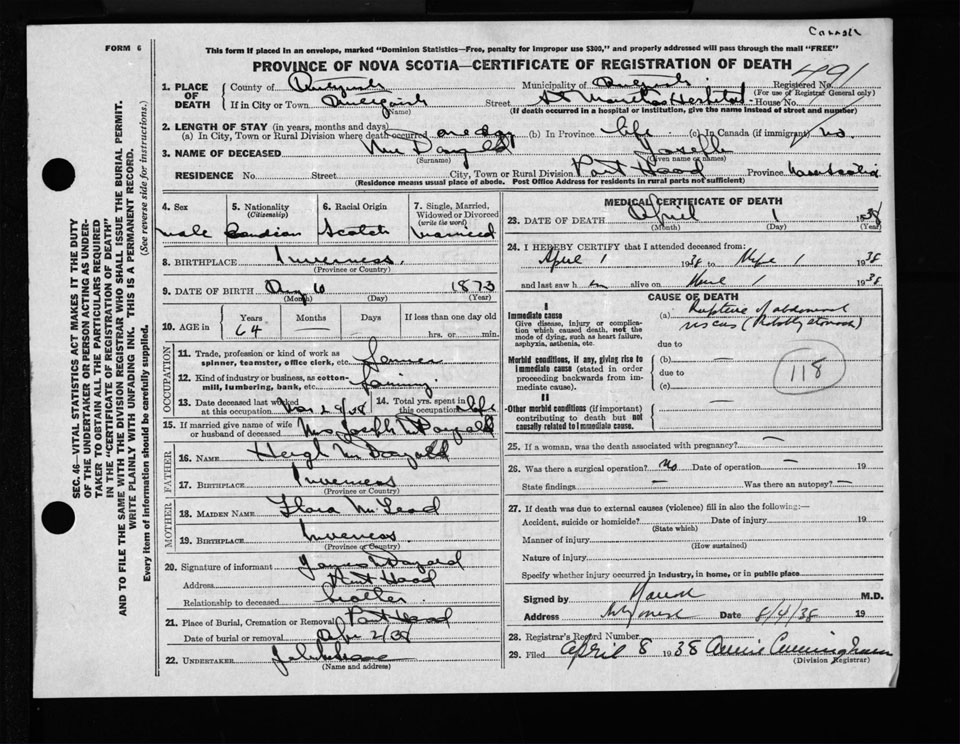 Canada
FORM 6
This form if placed in an envelope, marked "Dominion Statistics—Free, penalty for improper use $300," and properly addressed will pass through the mail "FREE"
PROVINCE OF NOVA SCOTIA—CERTIFICATE OF REGISTRATION OF DEATH
1. PLACE OF DEATH
County of Antigonish Municipality of Antigonish Registered No. 491
(For use of Registrar General only)
If in City or Town Antigonish Street St Marthas Hospital House No.
(Name) (If death occurred in a hospital or institution, give the name instead of street and number)
2. LENGTH OF STAY (in years, months and days)
(a) In City, Town or Rural Division where death occurred one day (b) In Province life (c) In Canada (if immigrant) no
3. NAME OF DECEASED McDougald Joseph
(Surname) (Given name or names)
RESIDENCE No. Street City, Town or Rural Division Port Hood Province Nova Scotia
(Residence means usual place of abode. Post Office Address for residents in rural parts not sufficient)
4. Sex
male
5. Nationality
(Citizenship)
Canadian
6. Racial Origin
Scotch
7. Single, Married, Widowed or Divorced
(write the word)
married
8. BIRTHPLACE Inverness.
(Province or Country)
9. DATE OF BIRTH Aug 10 1873
(Month) (Day) (Year)
10. AGE in
Years Months Days If less than one day
64 — — hrs. or min.
OCCUPATION
11. Trade, profession or kind of work as spinner, teamster, office clerk, etc. farmer
12. Kind of industry or business, as cotton-mill, lumbering, bank, etc. farming.
13. Date deceased last worked at this occupation 29/38
14. Total yrs. spent in this occupation life
15. If married give name of wife or husband of deceased Mrs Joseph McDougald
FATHER
16. NAME Hugh McDougald
17. BIRTHPLACE Inverness
(Province or Country)
MOTHER
18. MAIDEN NAME Flora McLeod
19. BIRTHPLACE Inverness.
(Province or Country)
20. Signature of informant James McDougald
Address Port Hood
Relationship to deceased brother
21. Place of Burial, Cremation or Removal Port Hood
Date of burial or removal Apr 2/38
22. UNDERTAKER
(Name and address)
MEDICAL CERTIFICATE OF DEATH
23. DATE OF DEATH April 1 1938
(Month) (Day) (Year)
24. I HEREBY CERTIFY that I attended deceased from:
April 1 1938 to April 1 1938
and last saw h im alive on April 1 1938
CAUSE OF DEATH
I
Immediate cause
Give disease, injury or complication which caused death, not the mode of dying, such as heart failure, asphyxia, asthenia, etc.
(a) Rupture of abdominal
viscus (Probably stomach)
due to
Morbid conditions, if any, giving rise to immediate cause (stated in order proceeding backwards from immediate cause).
(b) —
due to
(c) —
118
II
Other morbid conditions (if important) contributing to death but not causally related to immediate cause.
—
25. If a woman, was the death associated with pregnancy? —
26. Was there a surgical operation? no Date of operation — 19
State findings — Was there an autopsy? —
27. If death was due to external causes (violence) fill in also the following:—
Accident, suicide or homicide? Date of injury 19
(State which)
Manner of injury
(How sustained)
Nature of injury
Specify whether injury occurred in industry, in home, or in public place
Signed by M.D.
Address Date 8/4/38 19
28. Registrar's Record Number
29. Filed April 8 1938 Annie Cunningham
(Division Registrar)
SEC. 46—VITAL STATISTICS ACT MAKES IT THE DUTY
OF THE UNDERTAKER OR PERSON ACTING AS UNDER-
TAKER TO OBTAIN ALL THE PARTICULARS REQUIRED
IN THE "CERTIFICATE OF REGISTRATION OF DEATH"
AND TO FILE THE SAME WITH THE DIVISION REGISTRAR WHO SHALL ISSUE THE BURIAL PERMIT.
WRITE PLAINLY WITH UNFADING INK. THIS IS A PERMANENT RECORD.
Every item of information should be carefully supplied. (See reverse side for instructions.)